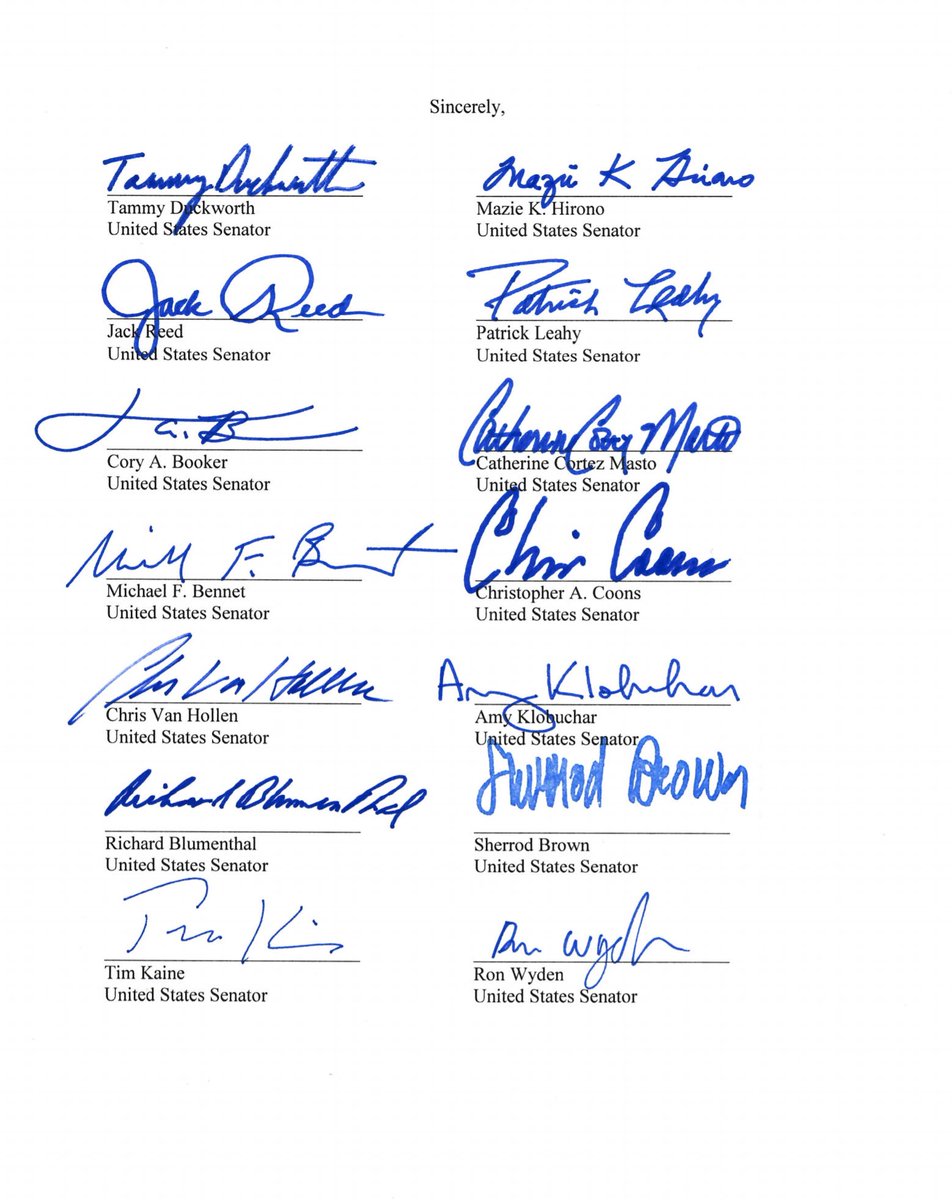 Sincerely,
Tammy Duckworth
Tammy Duckworth
United States Senator
Mazie K Hirono
Mazie K. Hirono
United States Senator
Jack Reed
Jack Reed
United States Senator
Patrick Leahy
Patrick Leahy
United States Senator
Cory A. Booker
United States Senator
Catherine Cortez Masto
Catherine Cortez Masto
United States Senator
Michael F. Bennet
United States Senator
Chris Coons
Christopher A. Coons
United States Senator
Chris Van Hollen
Chris Van Hollen
United States Senator
Amy Klobuchar
Amy Klobuchar
United States Senator
Richard Blumenthal
Richard Blumenthal
United States Senator
Sherrod Brown
Sherrod Brown
United States Senator
Tim Kaine
Tim Kaine
United States Senator
Ron Wyden
Ron Wyden
United States Senator